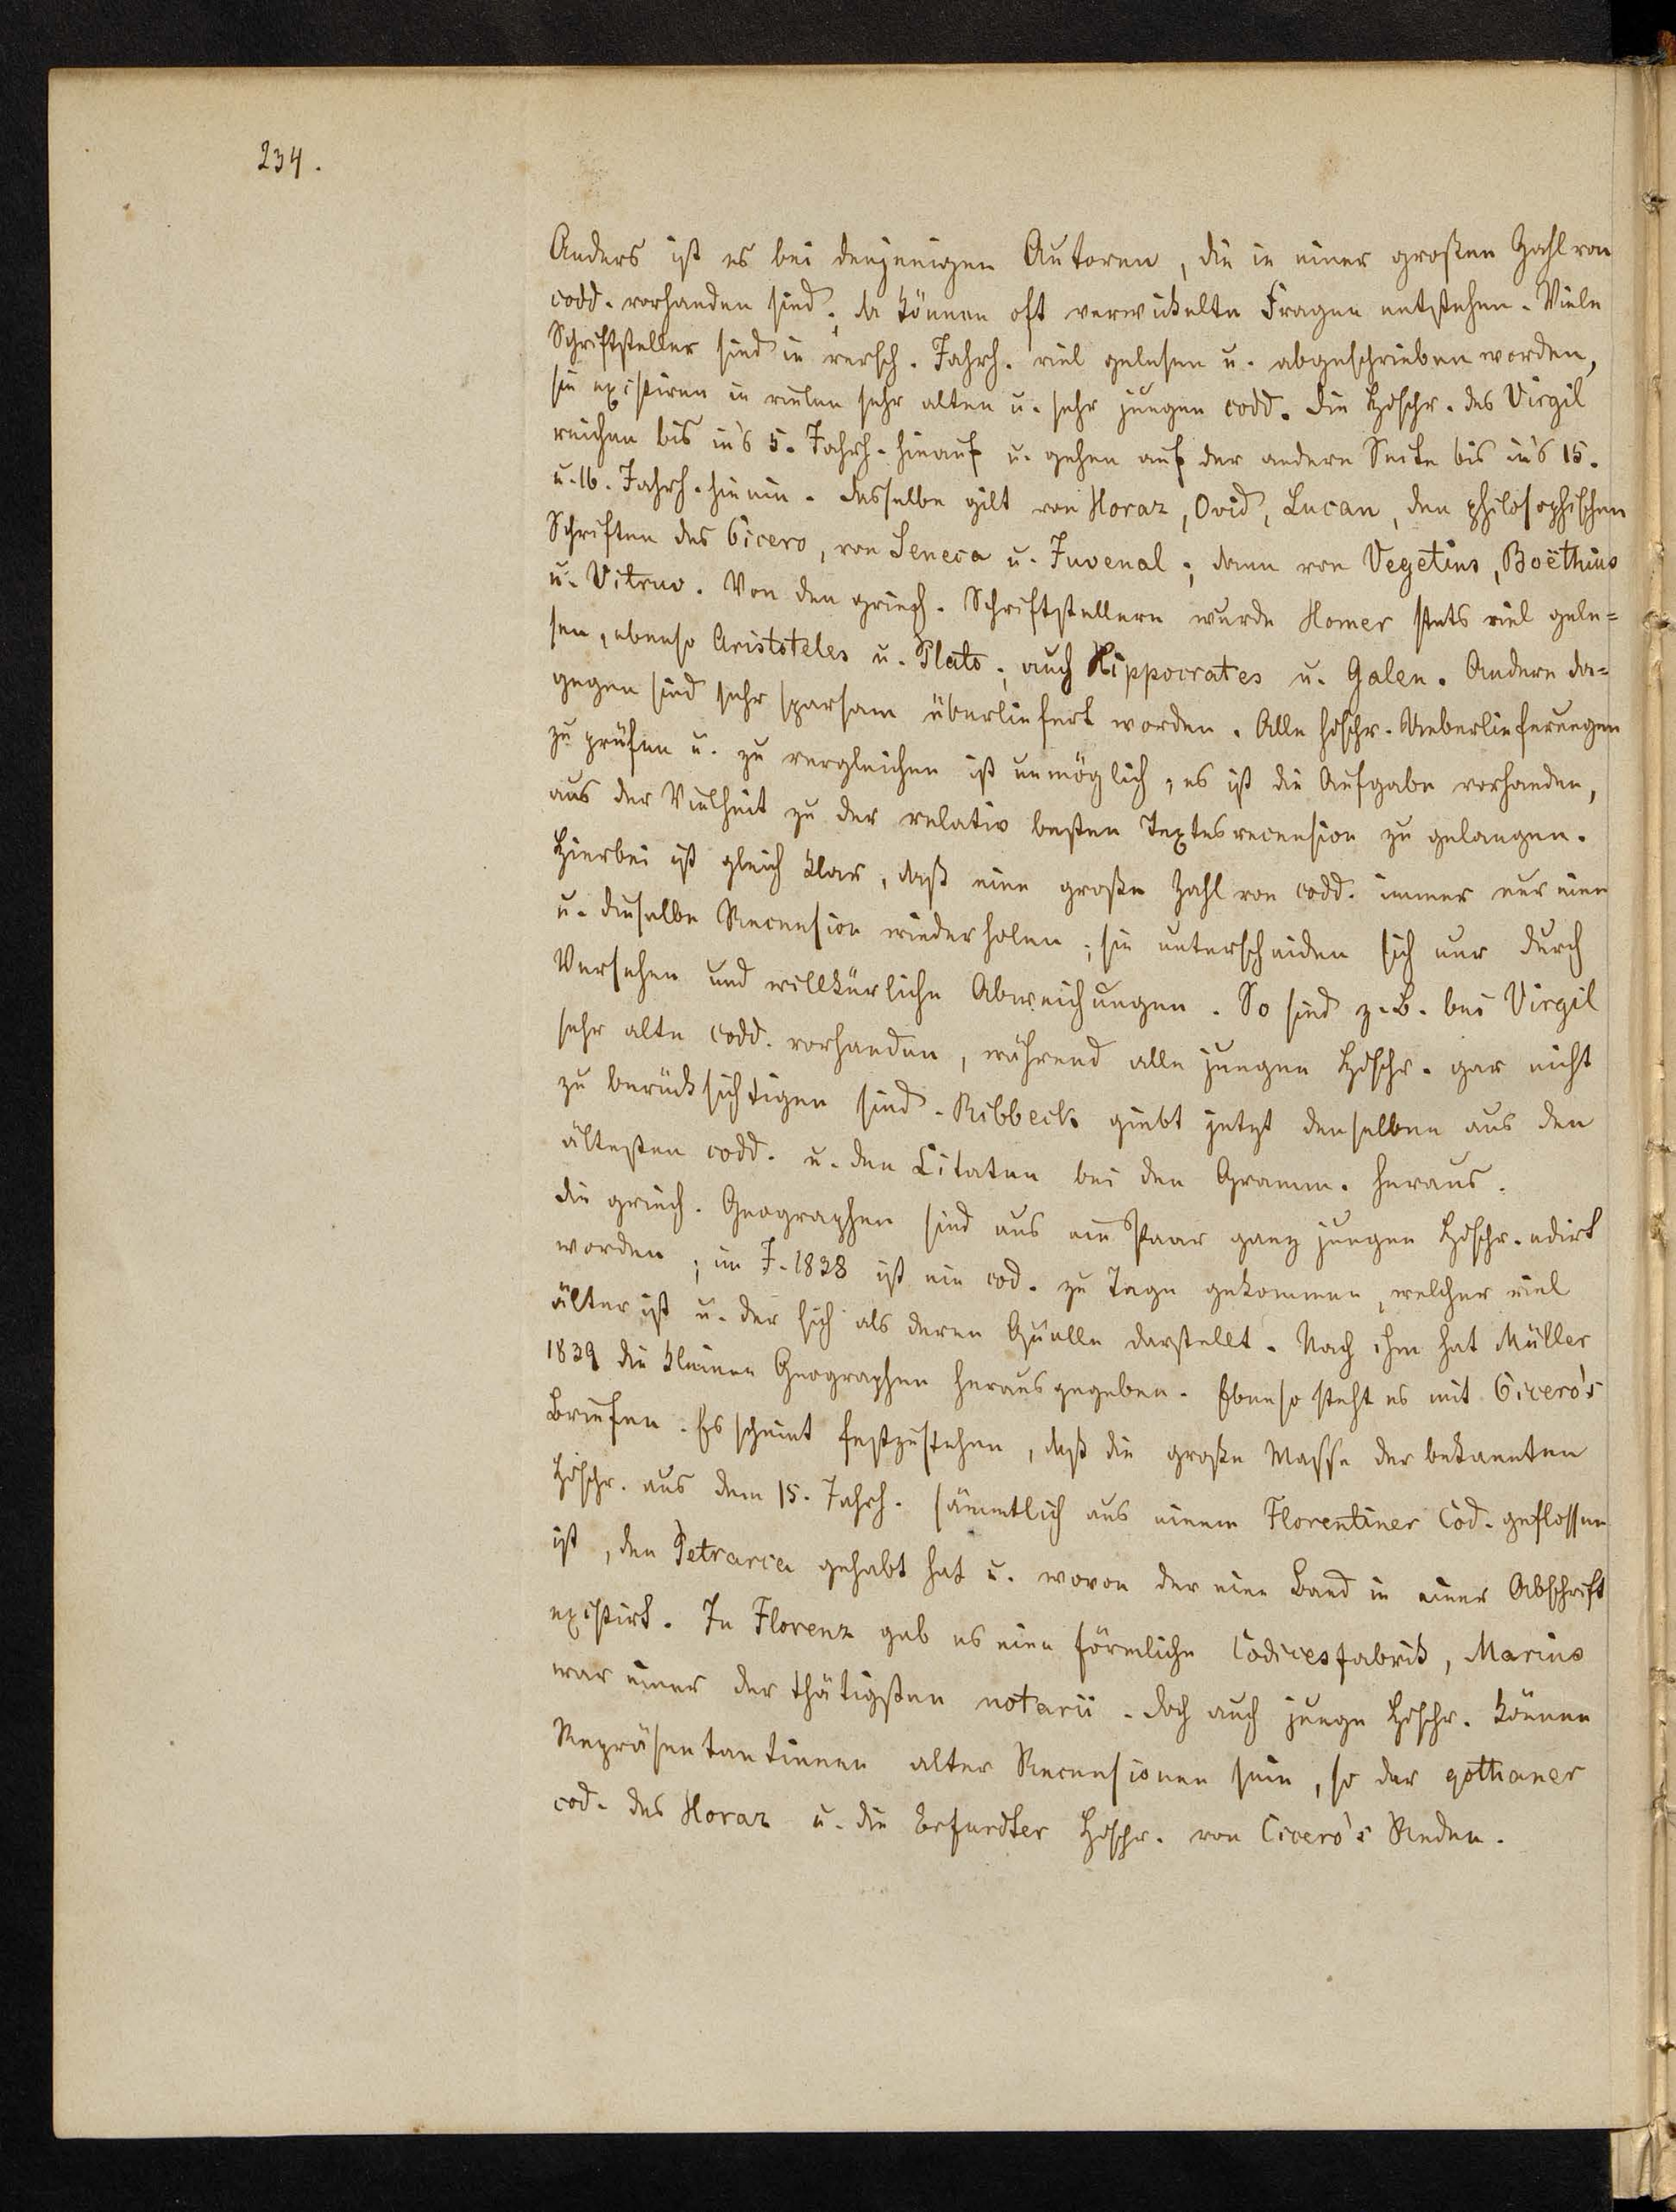 234.
Anders ist es bei denjenigen Autoren, die in einer großen Zahl von
codd. vorhanden sind; da können oft verwickelte Fragen entstehen. Viele
Schriftsteller sind in versch. Jahrh. viel gelesen u. abgeschrieben worden,
sie existiren in vielen sehr alten u. sehr jungen codd. Die Hdschr. des Virgil
reichen bis in's 5. Jahrh. hinauf u. gehen auf der andern Seite bis in's 15.
u. 16. Jahrh. hinein. Dasselbe gilt von Horaz, Ovid, Lucan, den philosophischen
Schriften des Cicero, von Seneca u. Juvenal; dann von Vegetius, Boëthius
u. Vitruv. Von den griech. Schriftstellern wurde Homer stets viel gele=
sen, ebenso Aristoteles u. Plato; auch Hippocrates u. Galen. Andere da=
gegen sind sehr sparsam überliefert worden. Alle hdschr. Ueberlieferungen
zu prüfen u. zu vergleichen ist unmöglich; es ist die Aufgabe vorhanden,
aus der Vielheit zu der relativ besten Textesrecension zu gelangen.
Hierbei ist gleich klar, daß eine große Zahl von codd. immer nur eine
u. dieselbe Recension wiederholen; sie unterscheiden sich nur durch
Versehen und willkürliche Abweichungen. So sind z. B. bei Virgil
sehr alte codd. vorhanden, während alle jungen Hdschr. gar nicht
zu berücksichtigen sind. Ribbeck giebt jetzt denselben aus den
ältesten codd. u. den Citaten bei den Gramm. heraus.
Die griech. Geographen sind aus ein Paar ganz jungen Hdschr. edirt
worden; im J. 1838 ist ein cod. zu Tage gekommen, welcher viel
älter ist u. der sich als deren Quelle darstellt. Nach ihm hat Müller
1839 die kleinen Geographen herausgegeben. Ebenso steht es mit Cicero's
Briefen. Es scheint festzustehen, daß die große Masse der bekannten
Hdschr. aus dem 15. Jahrh. sämmtlich aus einem Florentiner Cod. geflossen
ist, den Petrarca gehabt hat u. wovon der eine Band in einer Abschrift
existirt. In Florenz gab es eine förmliche Codicesfabrik, Marius
war einer der thätigsten notarii. Doch auch junge Hdschr. können
Repräsentantinnen alter Recensionen sein, so der gothaner
cod. des Horaz u. die Erfurdter Hdschr. von Cicero's Reden.